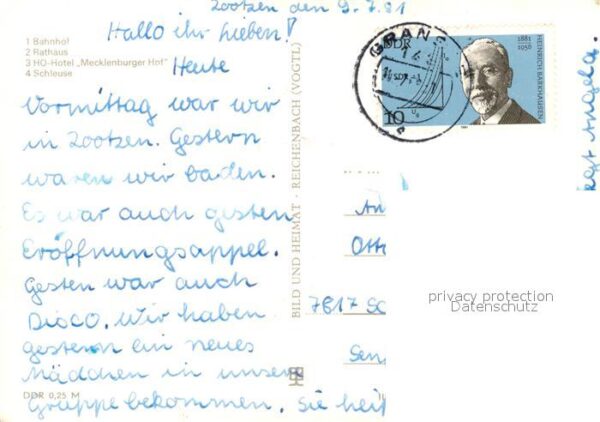 Zootzen den 9.7.81
Hallo ihr Lieben!
1 Bahnhof
2 Rathaus
3 HO-Hotel „Mecklenburger Hof"
4 Schleuse
Heute
Vormittag war wir
in Zootzen. Gestern
waren wir baden.
Es war auch gestern
Eröffnungsappel.
Gesten war auch
Disco. Wir haben
gestern ein neues
Mädchen in unsere
Gruppe bekommen. Sie heiß
DDR 0,25 M
BILD UND HEIMAT · REICHENBACH (VOGTL)
GRAN
DDR
10
1881
1956
HEINRICH BARKHAUSEN
An
Otto
7817 Sc
Sen
Angela.
privacy protection
Datenschutz